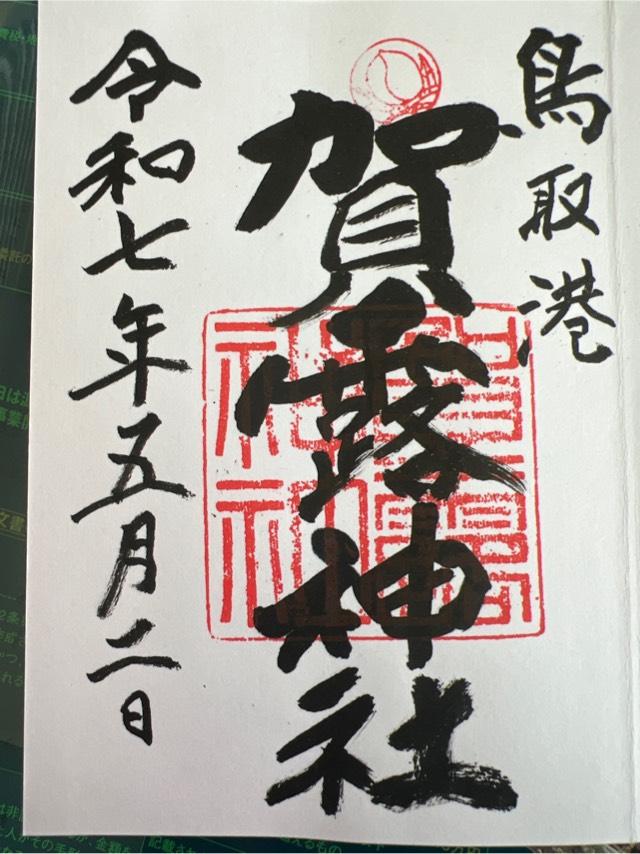 鳥取港
賀露神社
令和七年五月二日